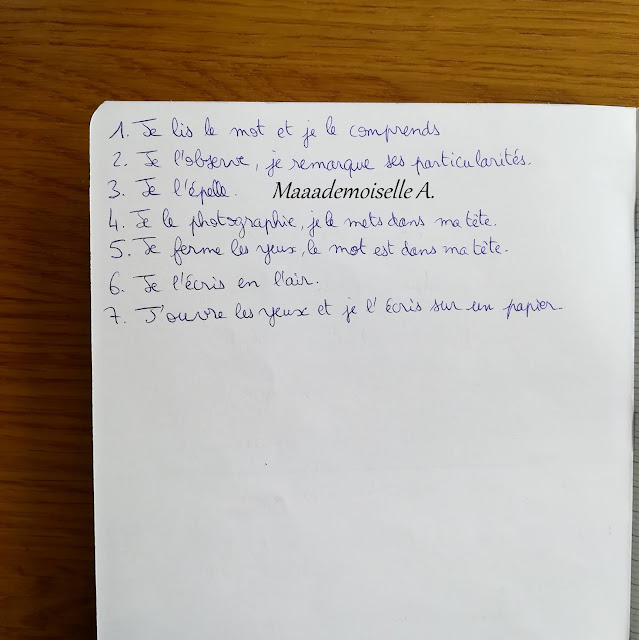 1. Je lis le mot et je le comprends
2. Je l'observe, je remarque ses particularités.
3. Je l'épelle. Maaademoiselle A.
4. Je le photographie, je le mets dans ma tête.
5. Je ferme les yeux, le mot est dans ma tête.
6. Je l'écris en l'air.
7. J'ouvre les yeux et je l'écris sur un papier.